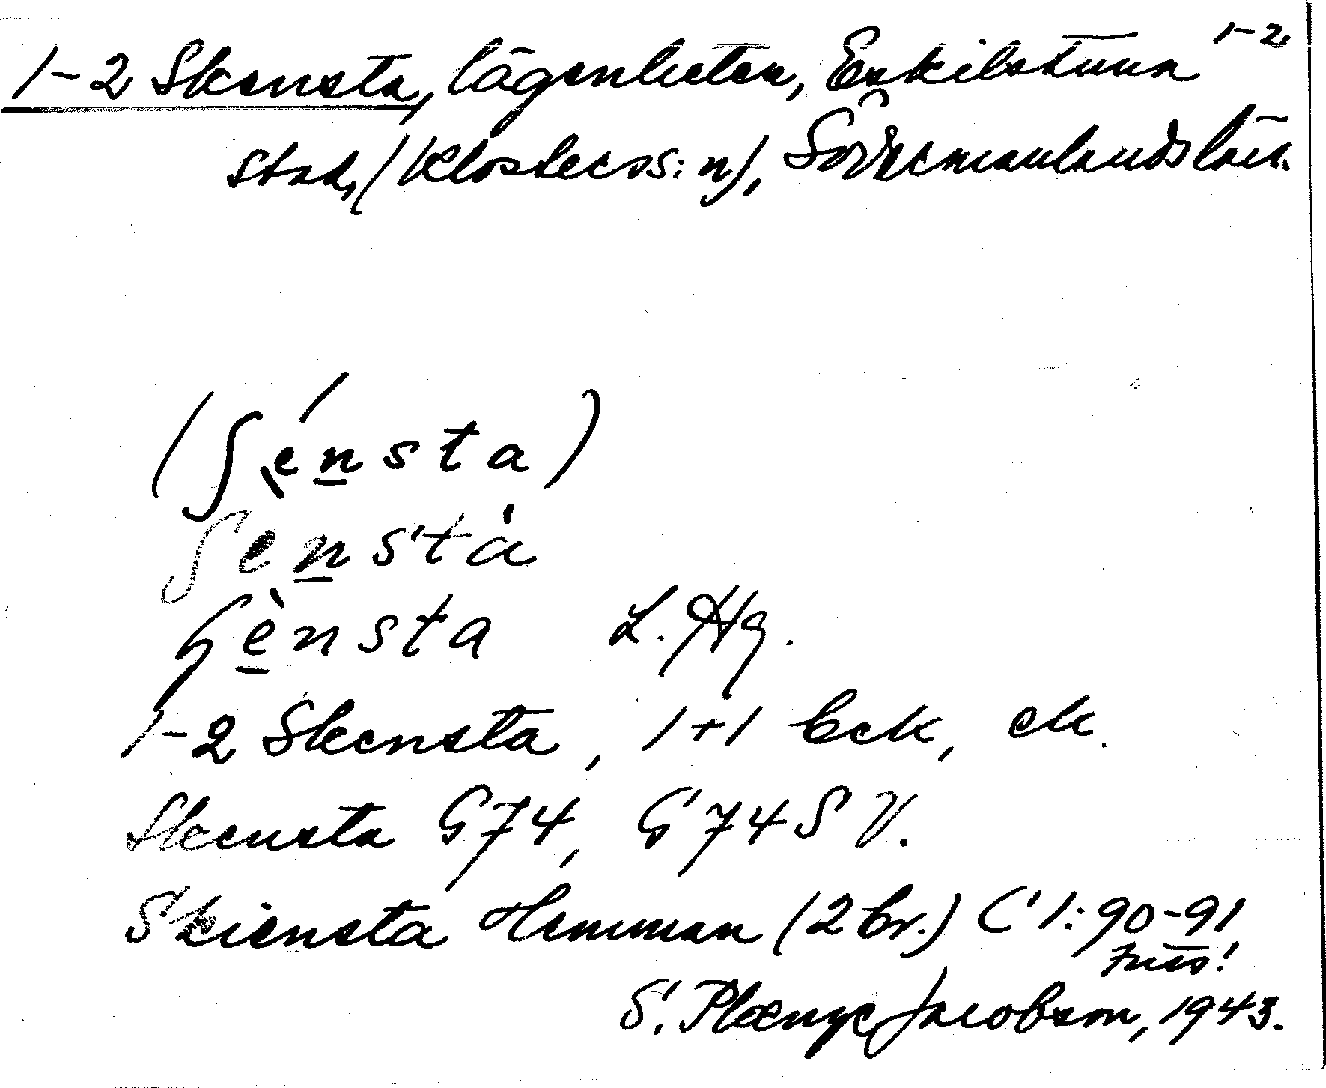 1-2
1-2 Skensta, lägenheten, Eskilstuna
stad, (Klosters s:n), Södermanlands län.
(ʃénsta)
ʃensta
ʃènsta L. Hg.
1-2 Skensta, 1+1 bck, ek.
Skensta G74, G74SV.
Skiensta Hemman (2 br.) C 1:90-91
S. Plænge Jacobson, 1943.